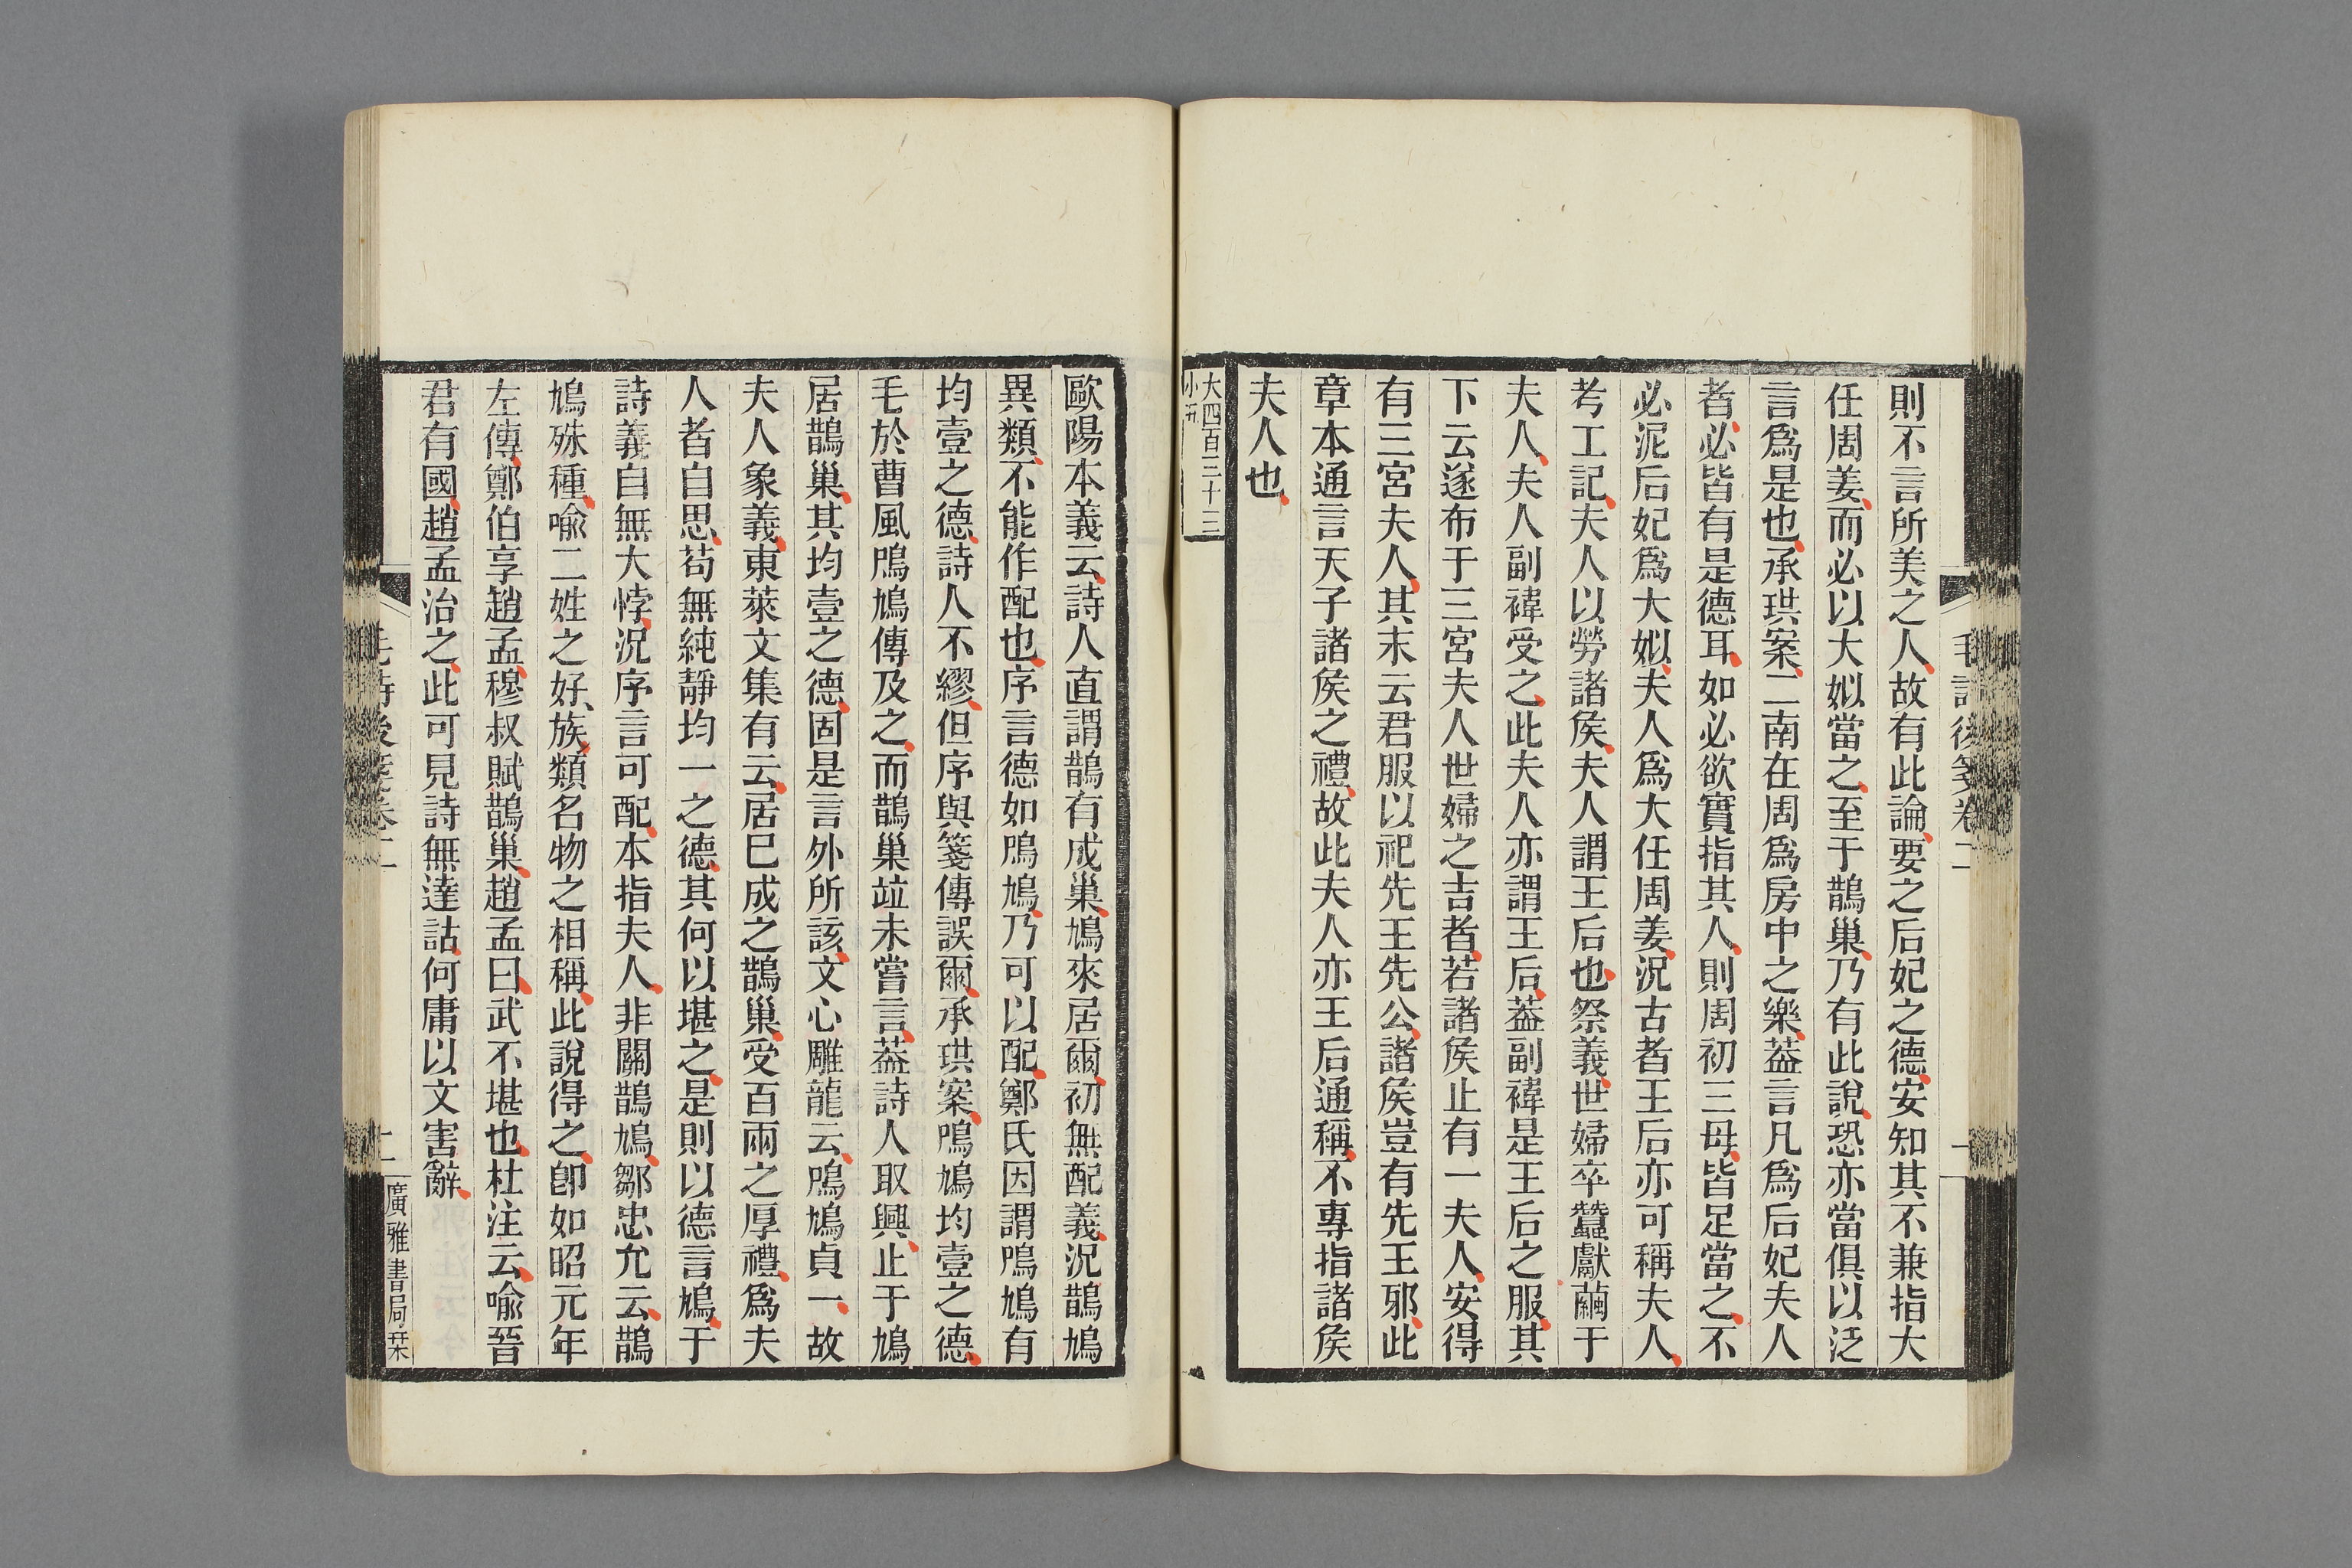 毛詩後箋卷二
一
則不言所美之人故有此論要之后妃之德安知其不兼指大
任周姜而必以大姒當之至于鵲巢乃有此說恐亦當俱以泛
言爲是也承珙案二南在周爲房中之樂葢言凡爲后妃夫人
者必皆有是德耳如必欲實指其人則周初三母皆足當之不
必泥后妃爲大姒夫人爲大任周姜況古者王后亦可稱夫人
考工記夫人以勞諸矦夫人謂王后也祭義世婦卒蠶獻繭于
夫人夫人副褘受之此夫人亦謂王后葢副褘是王后之服其
下云遂布于三宮夫人世婦之吉者若諸矦止有一夫人安得
有三宮夫人其末云君服以祀先王先公諸矦豈有先王邪此
章本通言天子諸矦之禮故此夫人亦王后通稱不專指諸矦
夫人也
大四百三十三
小五
歐陽本義云詩人直謂鵲有成巢鳩來居爾初無配義況鵲鳩
異類不能作配也序言德如鳲鳩乃可以配鄭氏因謂鳲鳩有
均壹之德詩人不繆但序與箋傳誤爾承珙案鳲鳩均壹之德
毛於曹風鳲鳩傳及之而鵲巢竝未嘗言葢詩人取興止于鳩
居鵲巢其均壹之德固是言外所該文心雕龍云鳲鳩貞一故
夫人象義東萊文集有云居巳成之鵲巢受百兩之厚禮爲夫
人者自思苟無純靜均一之德其何以堪之是則以德言鳩于
詩義自無大悖況序言可配本指夫人非關鵲鳩鄒忠允云鵲
鳩殊種喻二姓之好族類名物之相稱此說得之卽如昭元年
左傳鄭伯享趙孟穆叔賦鵲巢趙孟曰武不堪也杜注云喻晉
君有國趙孟治之此可見詩無達詁何庸以文害辭
毛詩後箋卷二
二
廣雅書局栞